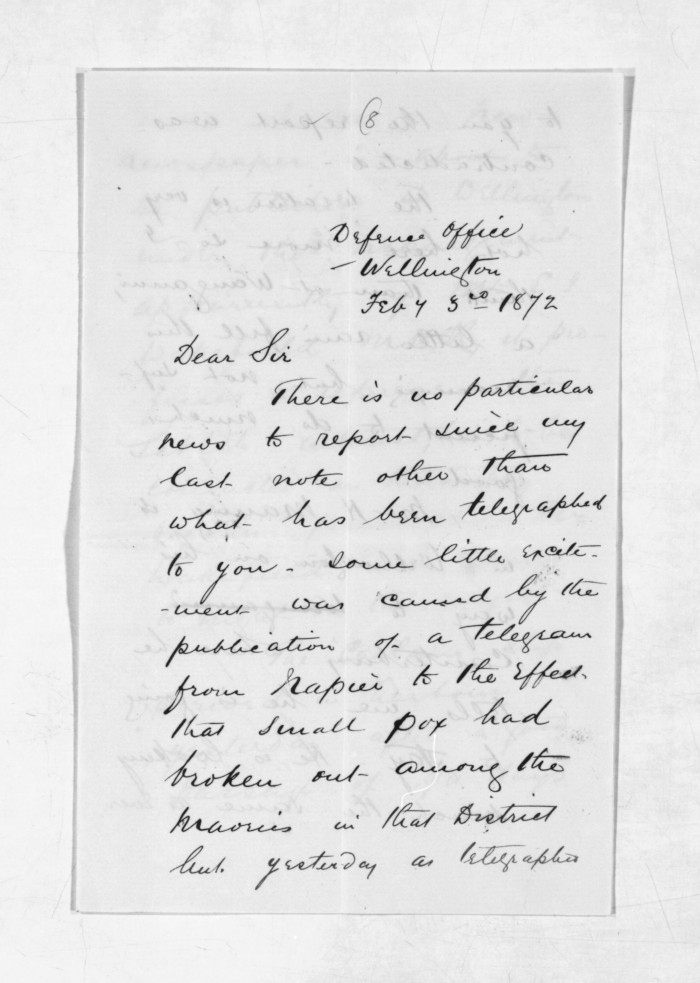 8
Defence Office
- Wellington
Feby 3rd 1872
Dear Sir
There is no particular
news to report since my
last note other than
what has been telegraphed
to you - some little excite-
-ment was caused by the
publication of a telegram
from Napier to the effect
that small pox had
broken out among the
Maories in that District
but yesterday as telegraphed